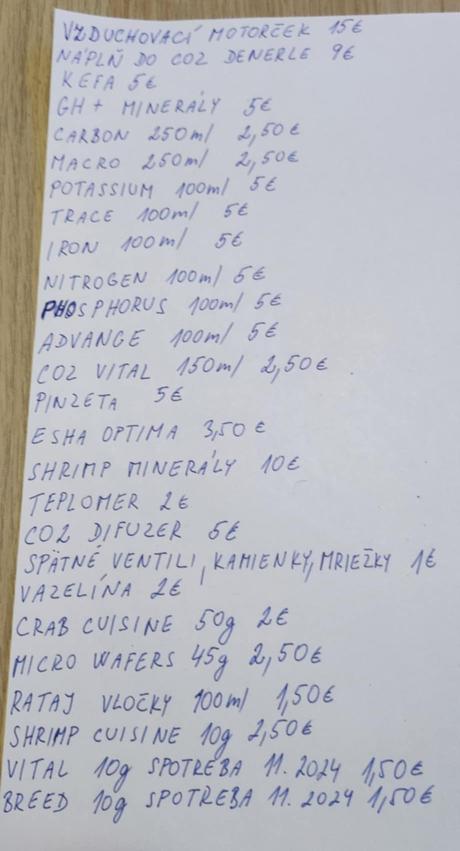 VZDUCHOVACÍ MOTORČEK 15€
NÁPLŇ DO CO2 DENERLE 9€
KEFA 5€
GH + MINERÁLY 5€
CARBON 250ml 2,50€
MACRO 250ml 2,50€
POTASSIUM 100ml 5€
TRACE 100ml 5€
IRON 100ml 5€
NITROGEN 100ml 5€
PHOSPHORUS 100ml 5€
ADVANGE 100ml 5€
CO2 VITAL 150ml 2,50€
PINZETA 5€
ESHA OPTIMA 3,50€
SHRIMP MINERÁLY 10€
TEPLOMER 2€
CO2 DIFUZER 5€
SPÄTNÉ VENTILI, KAMIENKY, MRIEŽKY 1€
VAZELÍNA 2€
CRAB CUISINE 50g 2€
MICRO WAFERS 45g 2,50€
RATAJ VLOČKY 100ml 1,50€
SHRIMP CUISINE 10g 2,50€
VITAL 10g SPOTREBA 11. 2024 1,50€
BREED 10g SPOTREBA 11. 2024 1,50€